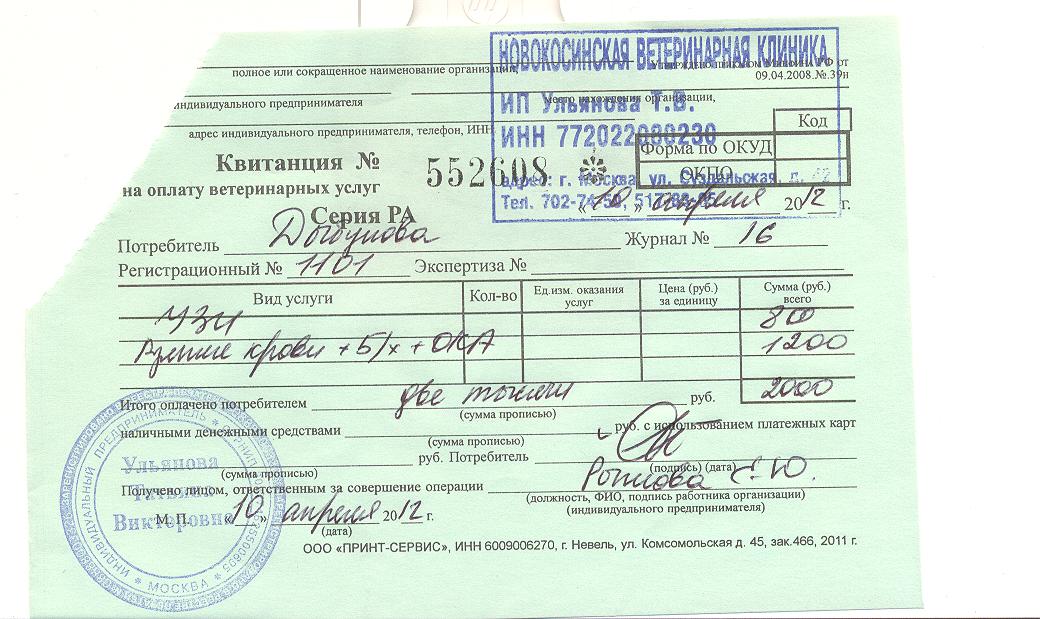 НОВОКОСИНСКАЯ ВЕТЕРИНАРНАЯ КЛИНИКА
полное или сокращенное наименование организации,
РФ от
09.04.2008.№.39н
индивидуального предпринимателя
место нахождения организации,
ИП Ульянова Т.В.
адрес индивидуального предпринимателя, телефон, ИНН
ИНН 772022080230
Код
Форма по ОКУД
ОКПО
Квитанция № 552608
на оплату ветеринарных услуг
адрес: г. Москва, ул. Суздальская, д.
Тел. 702-74-50,
«10» апреля 2012 г.
Серия РА
Потребитель Журнал № 16
Регистрационный № 1101 Экспертиза №
Вид услуги Кол-во Ед.изм. оказания услуг Цена (руб.) за единицу Сумма (руб.) всего
УЗИ 800
Взятие крови + Б/х + ОКА 1200
2000
Итого оплачено потребителем две тысячи руб.
(сумма прописью)
наличными денежными средствами руб. с использованием платежных карт
(сумма прописью)
руб. Потребитель
(сумма прописью) (подпись) (дата)
Получено лицом, ответственным за совершение операции
(должность, ФИО, подпись работника организации)
(индивидуального предпринимателя)
М. П. «10» апреля 2012 г.
(дата)
ООО «ПРИНТ-СЕРВИС», ИНН 6009006270, г. Невель, ул. Комсомольская д. 45, зак.466, 2011 г.
ИНДИВИДУАЛЬНЫЙ ПРЕДПРИНИМАТЕЛЬ
Ульянова
Татьяна
Викторовна
* МОСКВА *